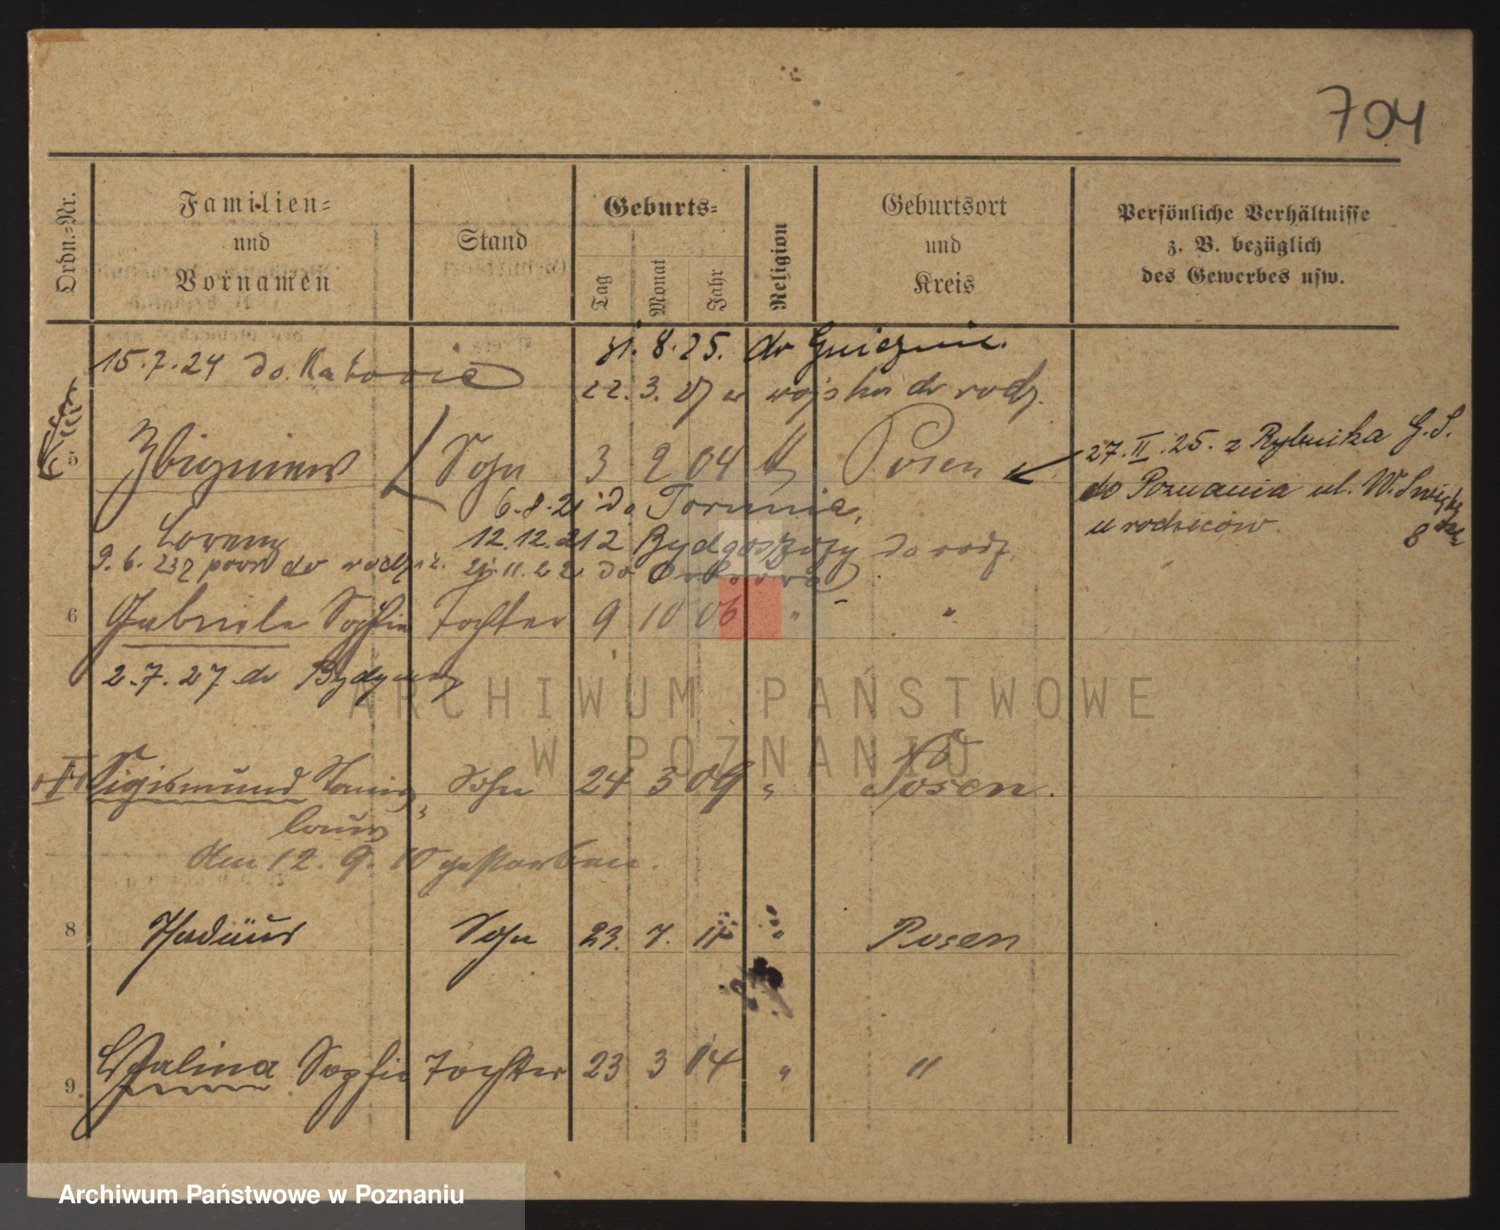 704
Ordn.=Nr.
Familien=
und
Vornamen
Stand
Geburts=
Tag
Monat
Jahr
Religion
Geburtsort
und
Kreis
Persönliche Verhältnisse
z. B. bezüglich
des Gewerbes usw.
15.7.24 do Katowic
31.8.25. do Gniezna.
22.3.27 z wojska do rodz.
5 Zbigniew Sohn 3 2 04 k Posen
27.II.25. z Rybnika G.S.
do Poznania ul. W.
u rodziców. 8
6.8.21 do Torunia,
Lorenz
12.12.21 z Bydgoszczy do rodz.
9.6. do rodzic. 21.11.22 do
6 Gabriele Sophie Tochter 9 10 06 " "
2.7.27 do Bydgoszcz
ARCHIWUM PAŃSTWOWE
W POZNANIU
Sigismund Stanis Sohn 24 3 09 " Posen.
laus
Am 12. 9. 10 gestorben.
8 Thadäus Sohn 23. 7. 11 " Posen
9. Halina Sophie Tochter 23 3 14 " "
Archiwum Państwowe w Poznaniu